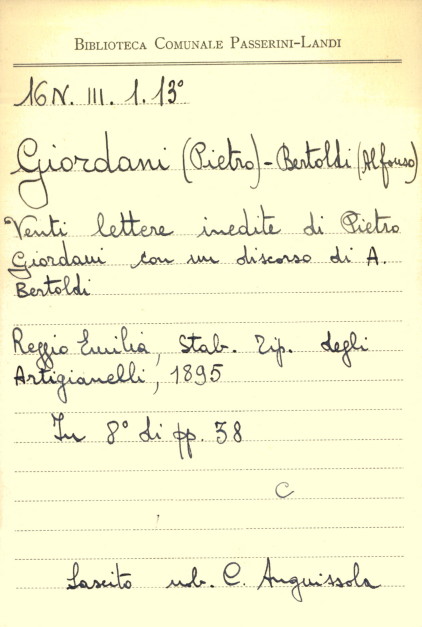 BIBLIOTECA COMUNALE PASSERINI-LANDI
16 N. III. 1. 13°
Giordani (Pietro) - Bertoldi (Alfonso)
Venti lettere inedite di Pietro
Giordani con un discorso di A.
Bertoldi
Reggio Emilia, Stab. Tip. degli
Artigianelli, 1895
In 8° di pp. 38
C
Lascito nob. C. Anguissola